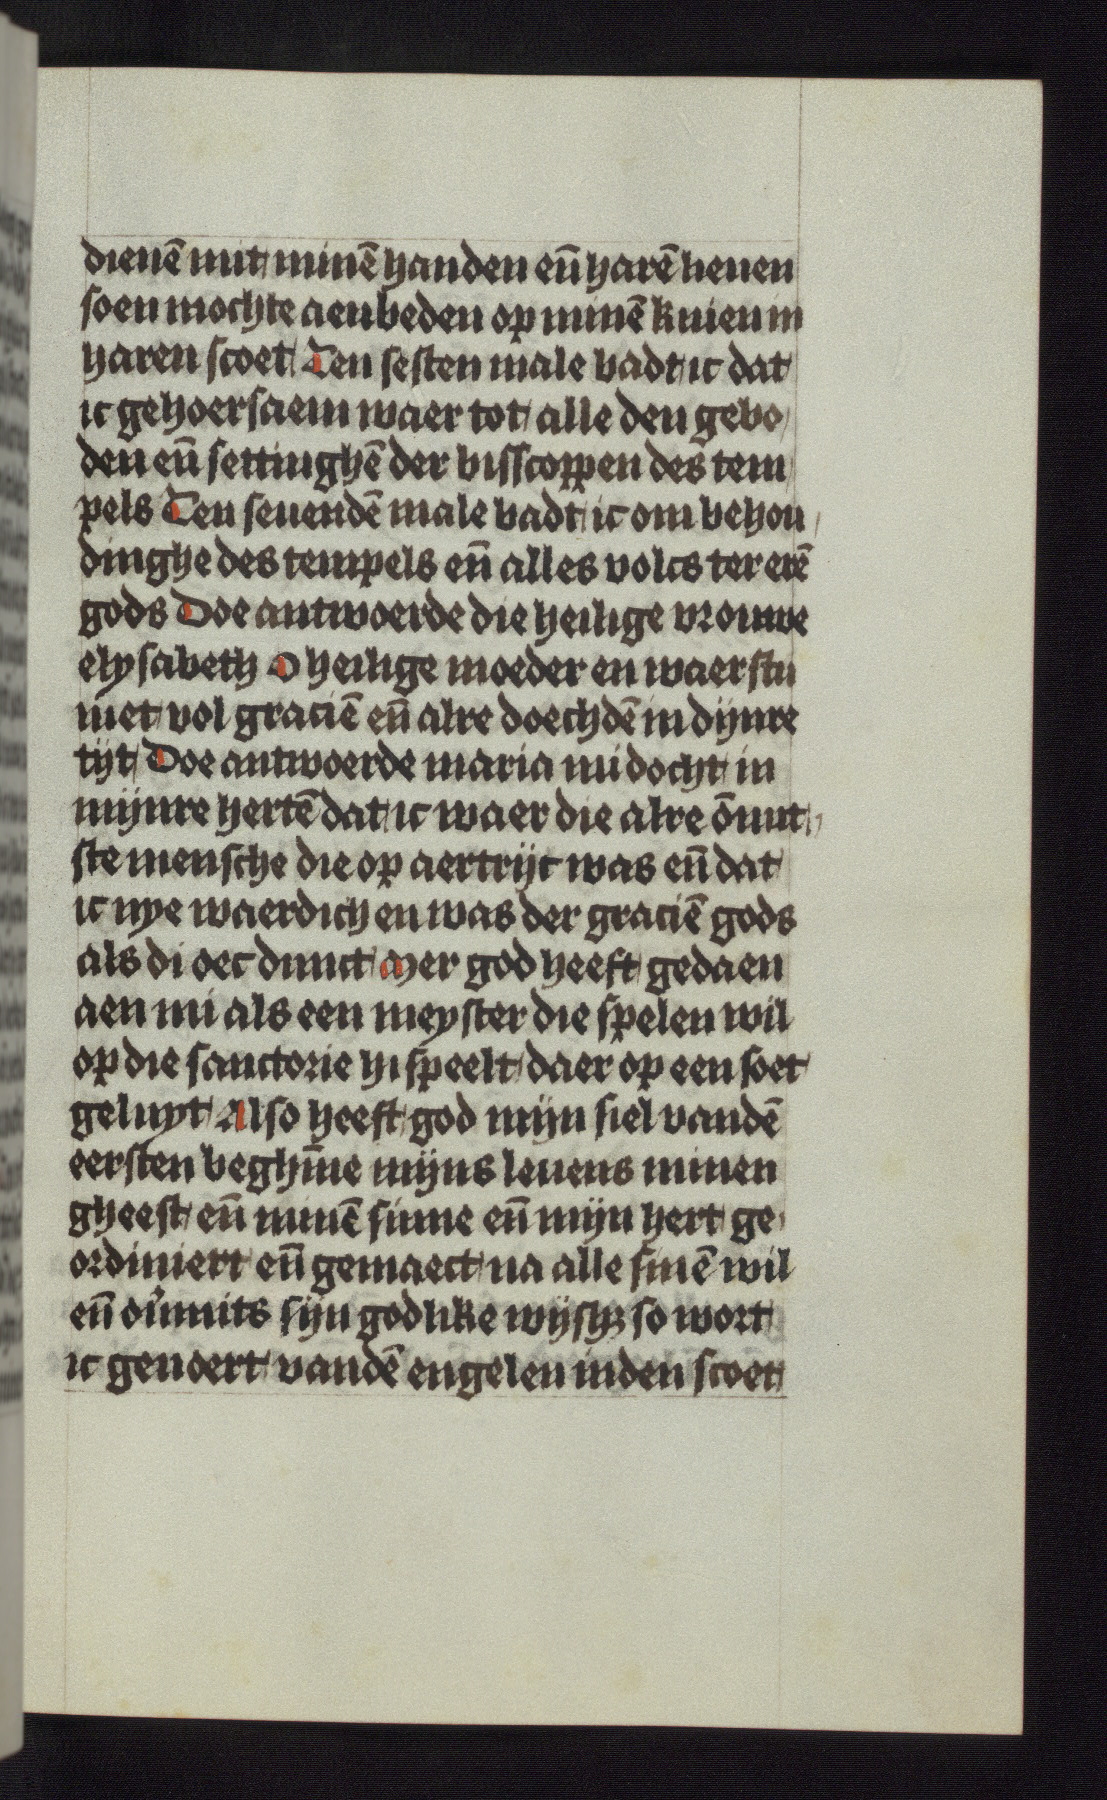 dienē mit minē handen en̄ harē lieuen
soen mochte aenbeden op minē knien in
haren scoet Ten sesten male badt ic dat
ic gehoersaem waer tot alle den gebo
den en̄ settinghē der bisscoppen des tem
pels Ten seuendē male badt ic om behou
dinghe des tempels en̄ alles volcs ter erē
gods Doe antwoerde die heilige vrouwe
elysabeth O heilige moeder en waerstu
niet vol graciē en̄ alre doechdē in dijnre
tijt Doe antwoerde maria mi docht in
mijnre hertē dat ic waer die alre ōnut
ste mensche die op aertrijc was en̄ dat
ic nye waerdich en was der graciē gods
als di oec dunct Mer god heeft gedaen
aen mi als een meyster die spelen wil
op die sanctorie hi speelt daer op een soet
geluyt Also heeft god mijn siel vandē
eersten beghīne mijns leuens minen
gheest en̄ minē sinne en̄ mijn hert ge
ordiniert en̄ gemaect na alle sinē wil
en̄ ou̓mits sijn godlike wijshꝫ so wort
ic geuoert vandē engelen inden scoet